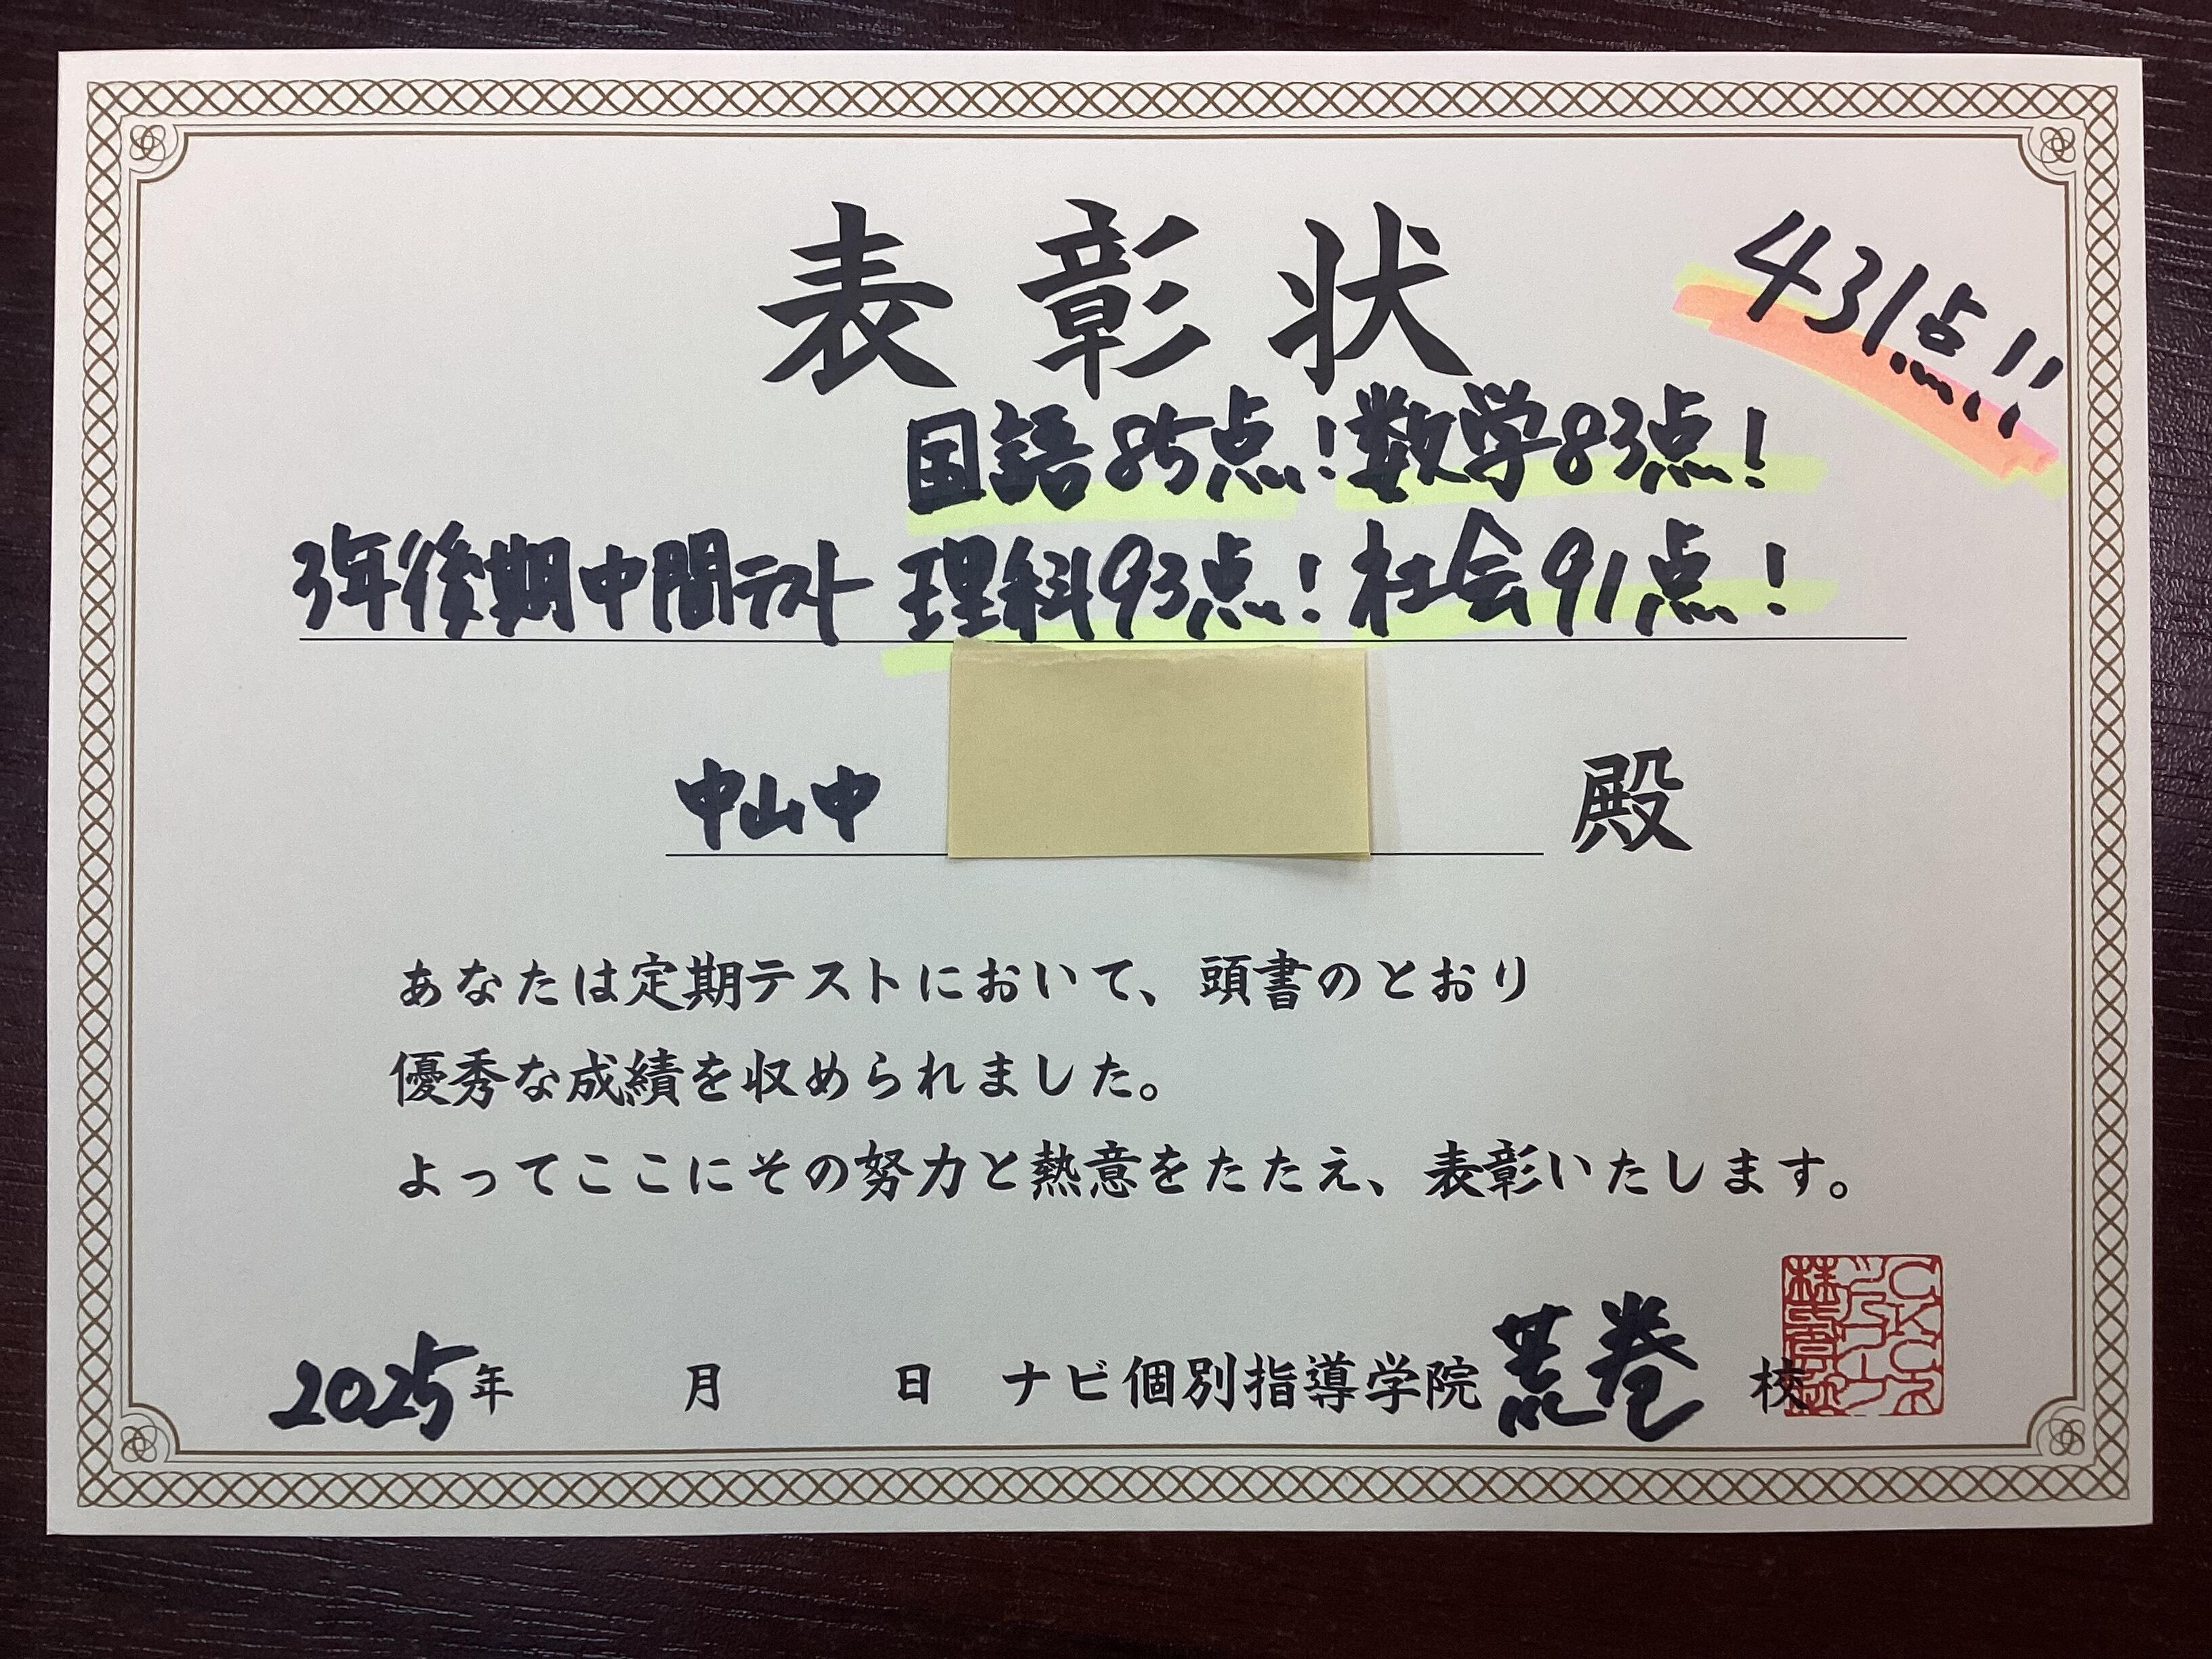 表彰状
431点!!
国語85点!数学83点!
3年後期中間テスト 理科93点!社会91点!
中山中 殿
あなたは定期テストにおいて、頭書のとおり
優秀な成績を収められました。
よってここにその努力と熱意をたたえ、表彰いたします。
2025年 月 日 ナビ個別指導学院 荒巻 校